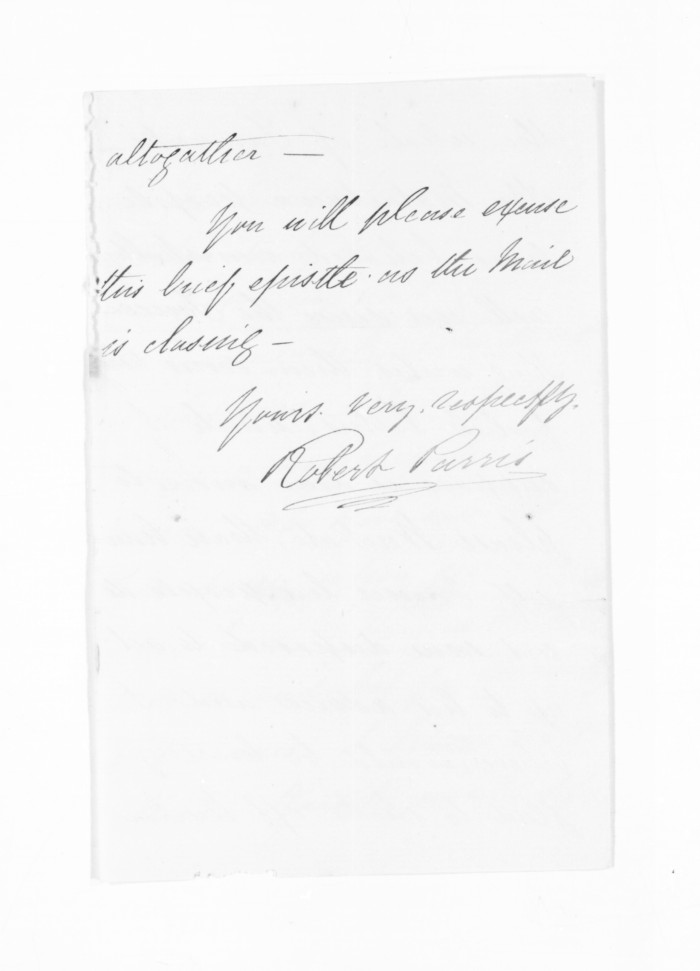 altogather —
You will please excuse
this brief epistle as the Mail
is closing —
Yours very respectfy.
Robert Parris